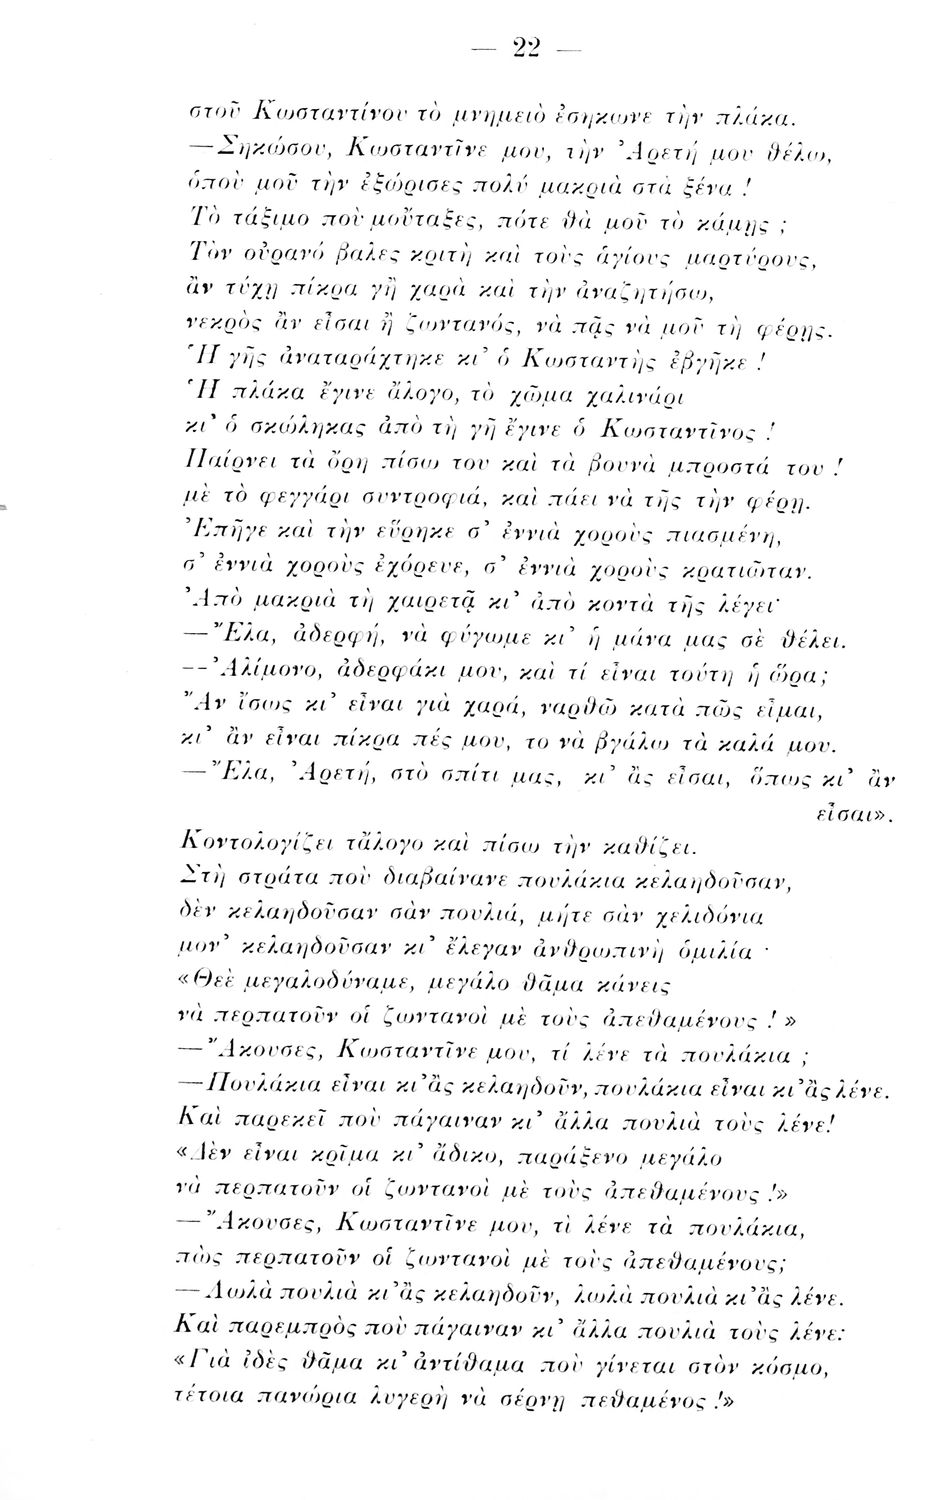 — 22 —
στοῦ Κωσταντίνου τὸ μνημειὸ ἐσηκωνε τὴν πλάκα.
—Σηκώσου, Κωσταντῖνε μου, τὴν Ἀρετή μου θέλω,
ὁποὺ μοῦ τὴν ἐξώρισες πολύ μακριὰ στὰ ξένα !
Τὸ τάξιμο ποὺ μοὔταξες, πότε θὰ μοῦ τὸ κάμῃς ;
Τὸν οὐρανό βαλες κριτὴ καὶ τοὺς ἁγίους μαρτύρους,
ἂν τύχῃ πίκρα γῆ χαρὰ καὶ τὴν ἀναζητήσω,
νεκρὸς ἂν εἶσαι ἢ ζωντανός, νὰ πᾷς νὰ μοῦ τὴ φέρῃς.
Ἡ γῆς ἀναταράχτηκε κι᾿ ὁ Κωσταντὴς ἐβγῆκε !
Ἡ πλάκα ἔγινε ἄλογο, τὸ χῶμα χαλινάρι
κι᾿ ὁ σκώληκας ἀπὸ τὴ γῆ ἔγινε ὁ Κωσταντῖνος !
Παίρνει τὰ ὄρη πίσω του καὶ τὰ βουνὰ μπροστά του !
μὲ τὸ φεγγάρι συντροφιά, καὶ πάει νὰ τῆς τὴν φέρῃ.
Ἐπῆγε καὶ τὴν εὕρηκε σ᾿ ἐννιὰ χοροὺς πιασμένη,
σ᾿ ἐννιὰ χοροὺς ἐχόρευε, σ᾿ ἐννιὰ χοροὺς κρατιῶταν.
Ἀπὸ μακριὰ τὴ χαιρετᾷ κι᾿ ἀπὸ κοντὰ τῆς λέγει·
—Ἔλα, ἀδερφή, νὰ φύγωμε κι᾿ ἡ μάνα μας σὲ θέλει.
—Ἀλίμονο, ἀδερφάκι μου, καὶ τί εἶναι τούτη ἡ ὥρα;
Ἂν ἴσως κι᾿ εἶναι γιὰ χαρά, ναρθῶ κατὰ πῶς εἶμαι,
κι᾿ ἂν εἶναι πίκρα πές μου, το νὰ βγάλω τὰ καλά μου.
—Ἔλα, Ἀρετή, στὸ σπίτι μας, κι᾿ ἂς εἶσαι, ὅπως κι᾿ ἂν
εἶσαι».
Κοντολογίζει τἄλογο καὶ πίσω τὴν καθίζει.
Στὴ στράτα ποὺ διαβαίνανε πουλάκια κελαηδοῦσαν,
δὲν κελαηδοῦσαν σὰν πουλιά, μήτε σὰν χελιδόνια
μον᾿ κελαηδοῦσαν κι᾿ ἔλεγαν ἀνθρωπινὴ ὁμιλία ·
«Θεὲ μεγαλοδύναμε, μεγάλο θᾶμα κάνεις
νὰ περπατοῦν οἱ ζωντανοὶ μὲ τοὺς ἀπεθαμένους ! »
—Ἄκουσες, Κωσταντῖνε μου, τί λένε τὰ πουλάκια ;
—Πουλάκια εἶναι κι᾿ ἂς κελαηδοῦν, πουλάκια εἶναι κι᾿ ἂς λένε.
Καὶ παρεκεῖ ποὺ πάγαιναν κι᾿ ἄλλα πουλιὰ τοὺς λένε!
«Δὲν εἶναι κρῖμα κι᾿ ἄδικο, παράξενο μεγάλο
νὰ περπατοῦν οἱ ζωντανοὶ μὲ τοὺς ἀπεθαμένους !»
—Ἄκουσες, Κωσταντῖνε μου, τὶ λένε τὰ πουλάκια,
πὼς περπατοῦν οἱ ζωντανοὶ μὲ τοὺς ἀπεθαμένους;
—Λωλὰ πουλιὰ κι᾿ ἂς κελαηδοῦν, λωλὰ πουλιὰ κι᾿ ἂς λένε.
Καὶ παρεμπρὸς ποὺ πάγαιναν κι᾿ ἄλλα πουλιὰ τοὺς λένε:
«Γιὰ ἰδὲς θᾶμα κι᾿ ἀντίθαμα ποὺ γίνεται στὸν κόσμο,
τέτοια πανώρια λυγερὴ νὰ σέρνῃ πεθαμένος !»